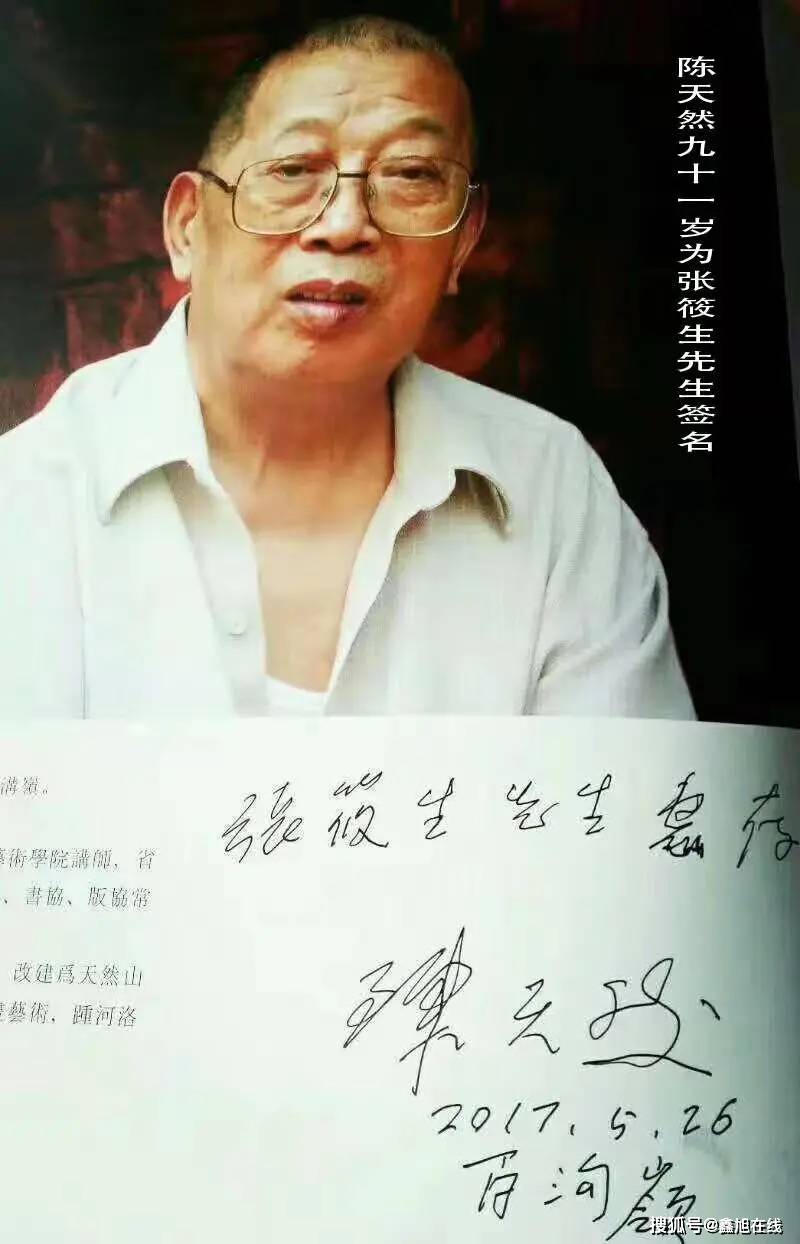 陈天然九十一岁为张筱生先生签名
溝嶺。
藝術學院講師，省
、書協、版協常
改建爲天然山
藝術，踵河洛
張筱生先生惠存
陳天然
2017.5.26
搜狐号@鑫旭在线